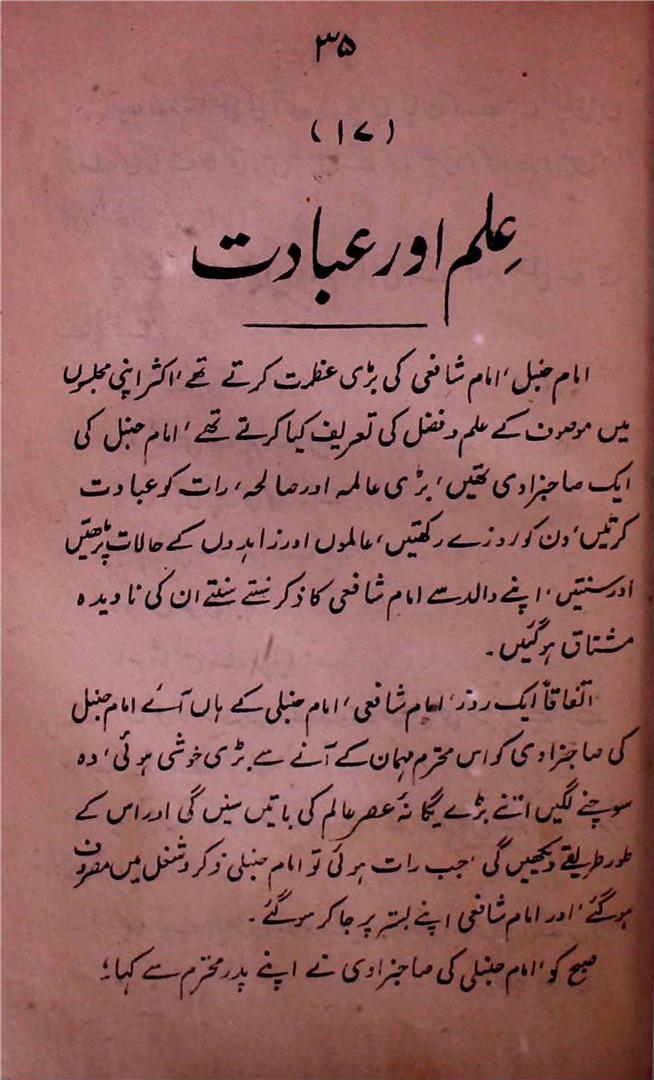 ۳۵
(۱۷)
عِلم اور عبادت
امام حنبل، امام شافعی کی بڑی عظمت کرتے تھے، اکثر اپنی مجلسوں
میں موصوف کے علم و فضل کی تعریف کیا کرتے تھے، امام حنبل کی
ایک صاحبزادی تھیں، بڑی عالمہ اور صالحہ، رات کو عبادت
کرتیں، دن کو روزے رکھتیں، عالموں اور زاہدوں کے حالات پڑھتیں
اور سنتیں، اپنے والد سے امام شافعی کا ذکر سنتے سنتے ان کی نادیدہ
مشتاق ہو گئیں۔
اتفاقاً ایک روز، امام شافعی، امام حنبلی کے ہاں آئے امام حنبل
کی صاحبزادی کو اس محترم مہمان کے آنے سے بڑی خوشی ہوئی، وہ
سوچنے لگیں اتنے بڑے یگانۂ عصر عالم کی باتیں سنیں گی اور اس کے
طور طریقے دیکھیں گی، جب رات ہوئی تو امام حنبلی ذکر و شغل میں مصروف
ہو گئے، اور امام شافعی اپنے بستر پر جا کر سو گئے۔
صبح کو، امام حنبلی کی صاحبزادی نے اپنے پدر محترم سے کہا؛